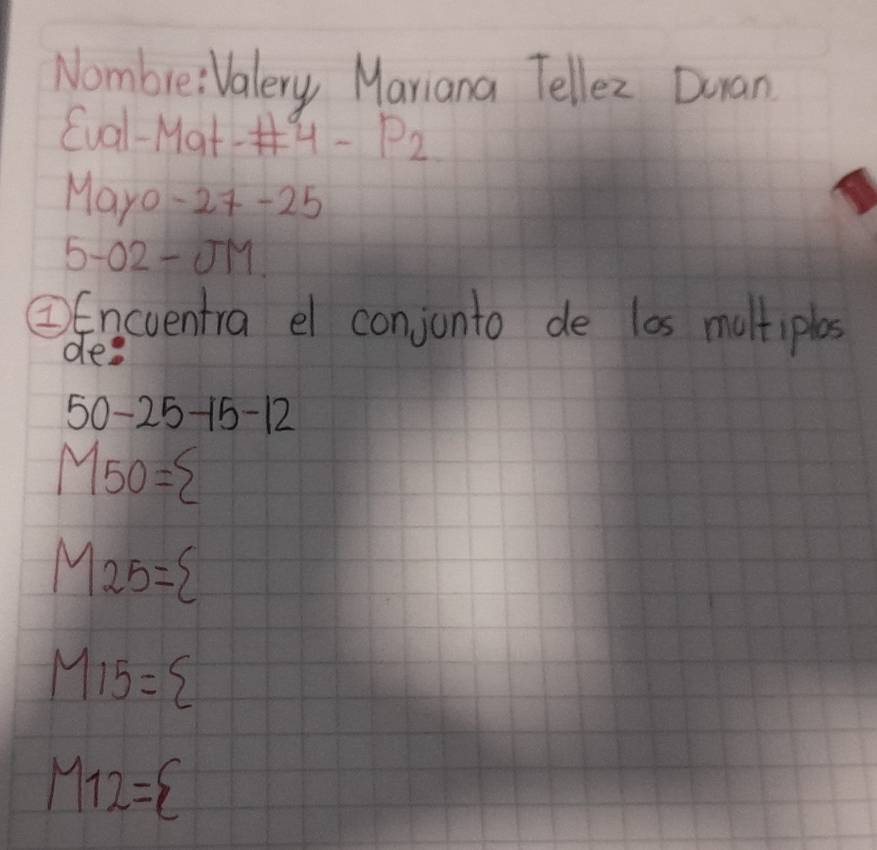 Nombre: Valery Mariana Tellez Duran
Eval-Mat-#4-P2
Mayo-27-25
5-02-JM.
① Encuentra el conjunto de los multiplos
de:
50-25-15-12
M50={
M25={
M15={
M12={